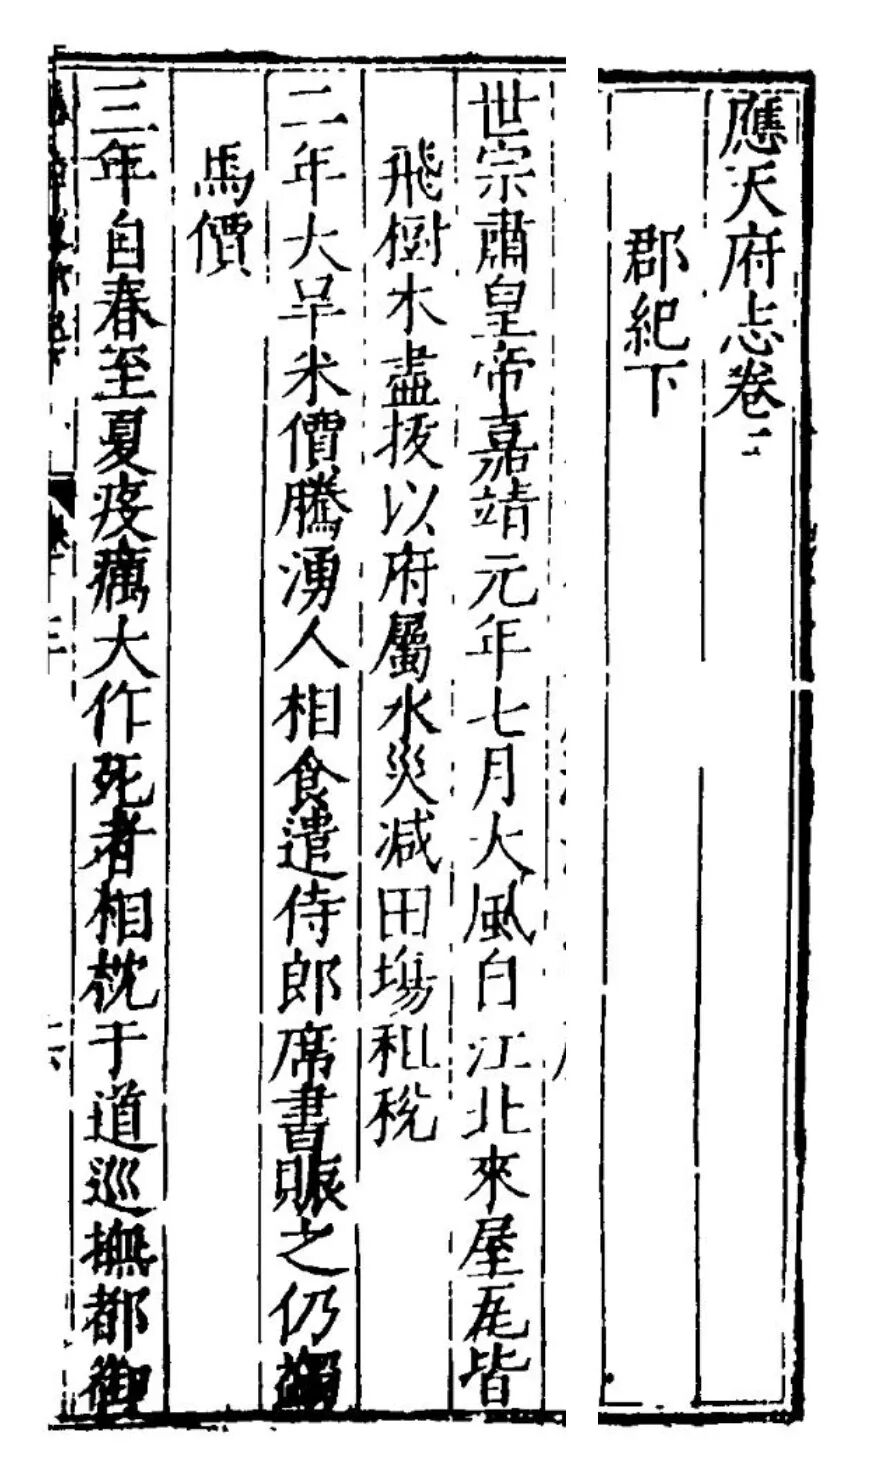 應天府志卷三
郡紀下
世宗肅皇帝嘉靖元年七月大風自江北來屋瓦皆
飛樹木盡拔以府屬水災減田塲租稅
二年大旱米價騰湧人相食遣侍郎席書賑之仍蠲
馬價
三年自春至夏疫癘大作死者相枕于道巡撫都御